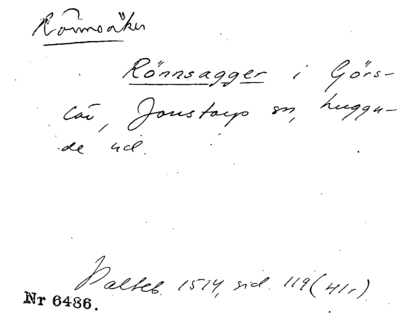 Rönnsåker
Rönnsagger i Görs-
löv, Jonstorp sn, Luggu-
de hd.
Palteb. 1514, sid. 119 (41r).
Nr 6486.